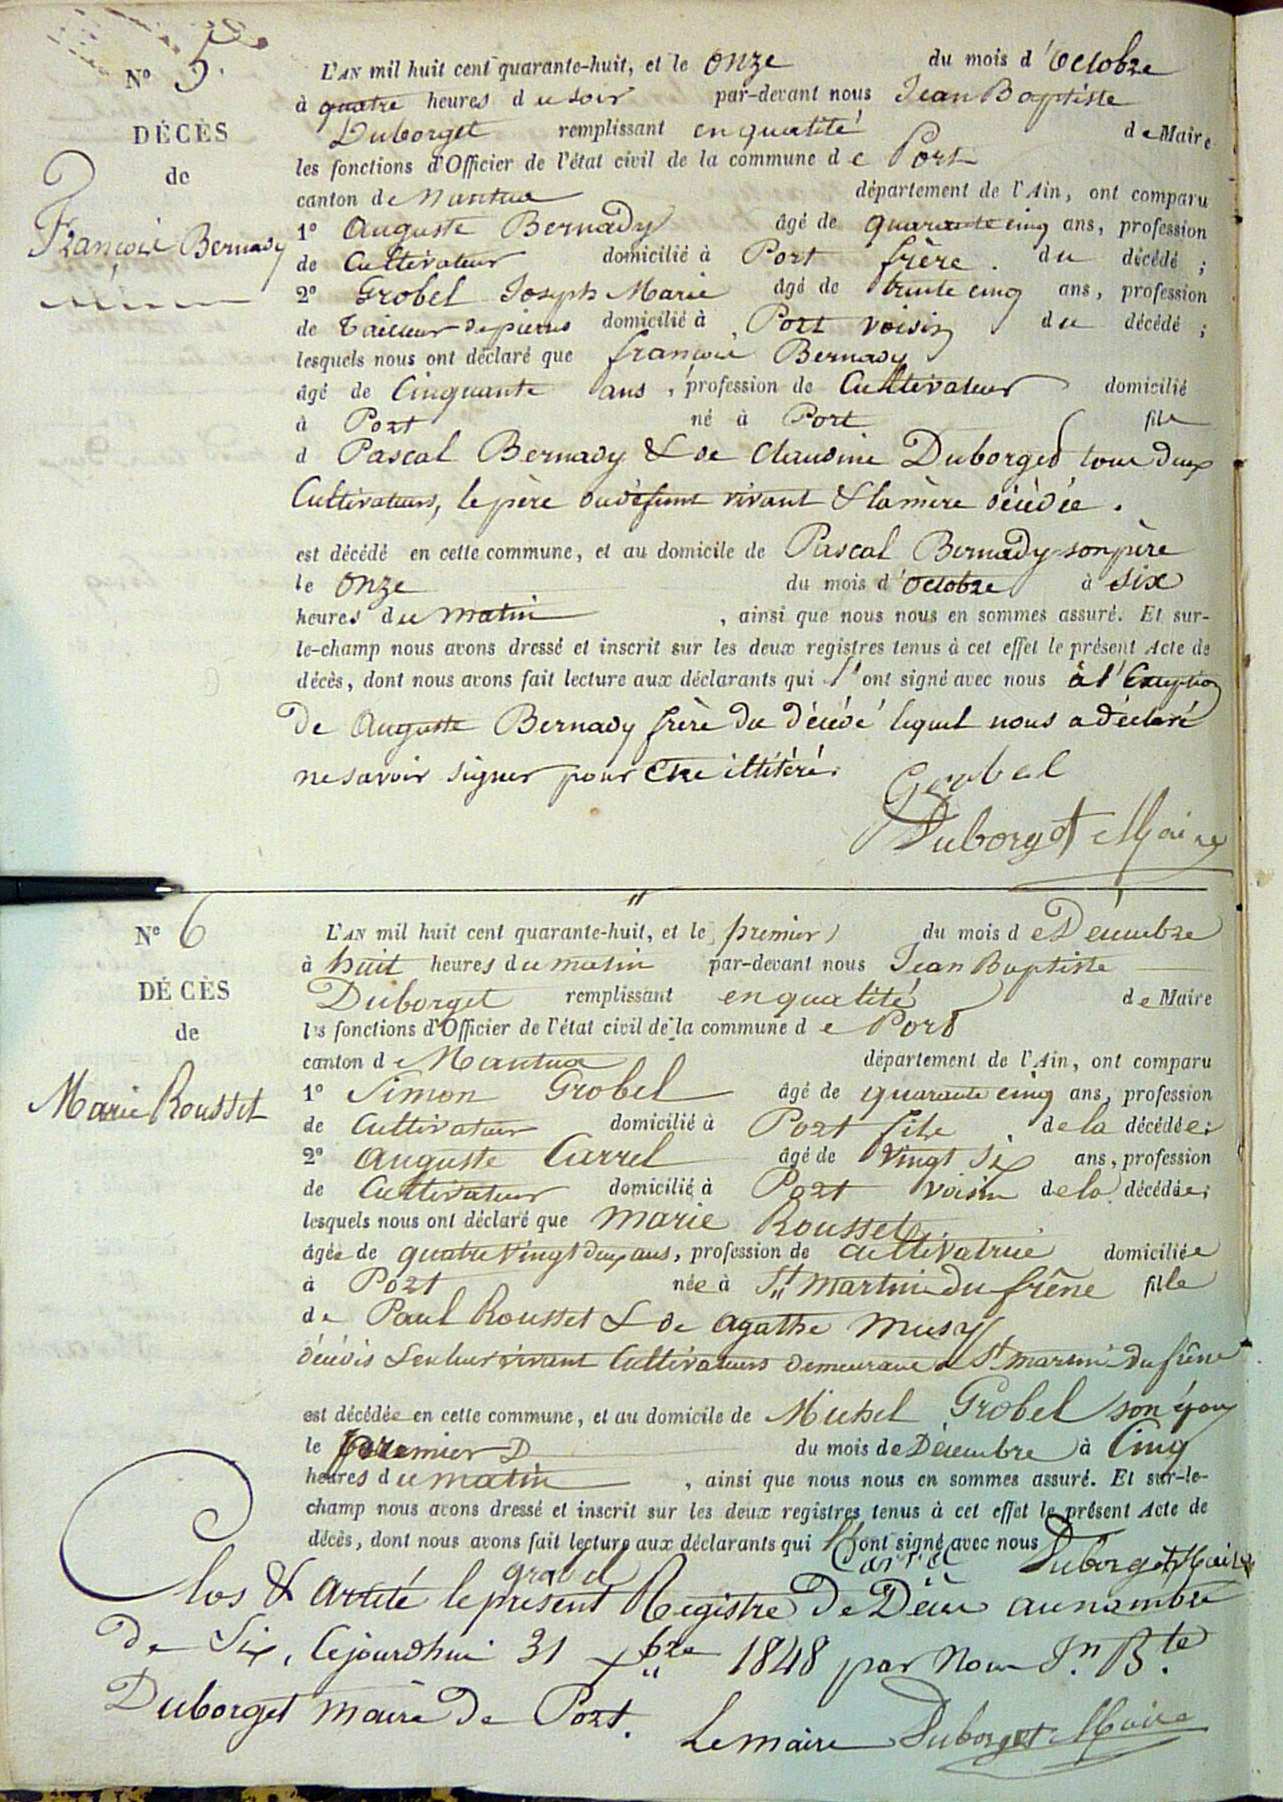 N° 5.
DÉCÈS
de
François Bernady
L'AN mil huit cent quarante-huit, et le onze du mois d'octobre
à quatre heures du soir par-devant nous Jean Baptiste
Duborget remplissant en qualité de Maire
les fonctions d'Officier de l'état civil de la commune de Port
canton de Nantua département de l'Ain, ont comparu
1° Auguste Bernady âgé de quarante cinq ans, profession
de Cultivateur domicilié à Port frère du décédé ;
2° Grobel Joseph Marie âgé de trente cinq ans, profession
de Tailleur de pierres domicilié à Port voisin du décédé ;
lesquels nous ont déclaré que françois Bernady
âgé de Cinquante ans, profession de Cultivateur domicilié
à Port né à Port fils
d Pascal Bernady & de Claudine Duborget tous deux
Cultivateurs, le père vivant & la mère décédée.
est décédé en cette commune, et au domicile de Pascal Bernady son père
le onze du mois d'octobre à six
heures du matin, ainsi que nous nous en sommes assuré. Et sur-
le-champ nous avons dressé et inscrit sur les deux registres tenus à cet effet le présent Acte de
décès, dont nous avons fait lecture aux déclarants qui l'ont signé avec nous à l'Exception
De Auguste Bernady frère du décédé lequel nous a déclaré
ne savoir signer pour être illitéré.
Grobel
Duborget Maire
N° 6
DÉCÈS
de
Marie Rousset
L'AN mil huit cent quarante-huit, et le premier du mois de Décembre
à huit heures du matin par-devant nous Jean Baptiste
Duborget remplissant en qualité de Maire
les fonctions d'Officier de l'état civil de la commune de Port
canton de Nantua département de l'Ain, ont comparu
1° Simon Grobel âgé de quarante cinq ans, profession
de Cultivateur domicilié à Port fils de la décédée;
2° Auguste Carrel âgé de vingt six ans, profession
de Cultivateur domicilié à Port voisin de la décédée;
lesquels nous ont déclaré que Marie Rousset
âgée de quatre vingt deux ans, profession de cultivatrice domiciliée
à Port née à St Martin du frêne fille
de Paul Rousset & de Agathe Musy
décédés & en leur vivant Cultivateurs demeurant à St Martin du frêne
est décédée en cette commune, et au domicile de Michel Grobel son époux
le premier D du mois de Décembre à Cinq
heures du matin, ainsi que nous nous en sommes assuré. Et sur-le-
champ nous avons dressé et inscrit sur les deux registres tenus à cet effet le présent Acte de
décès, dont nous avons fait lecture aux déclarants qui l'ont signé avec nous
Grobel Carrel Duborget Maire
Clos & arrêté le présent Registre De Décès au nombre
De Six, Cejourdhui 31 Xbre 1848 par Nous Jn Bte
Duborget maire De Port.
Le maire Duborget Maire